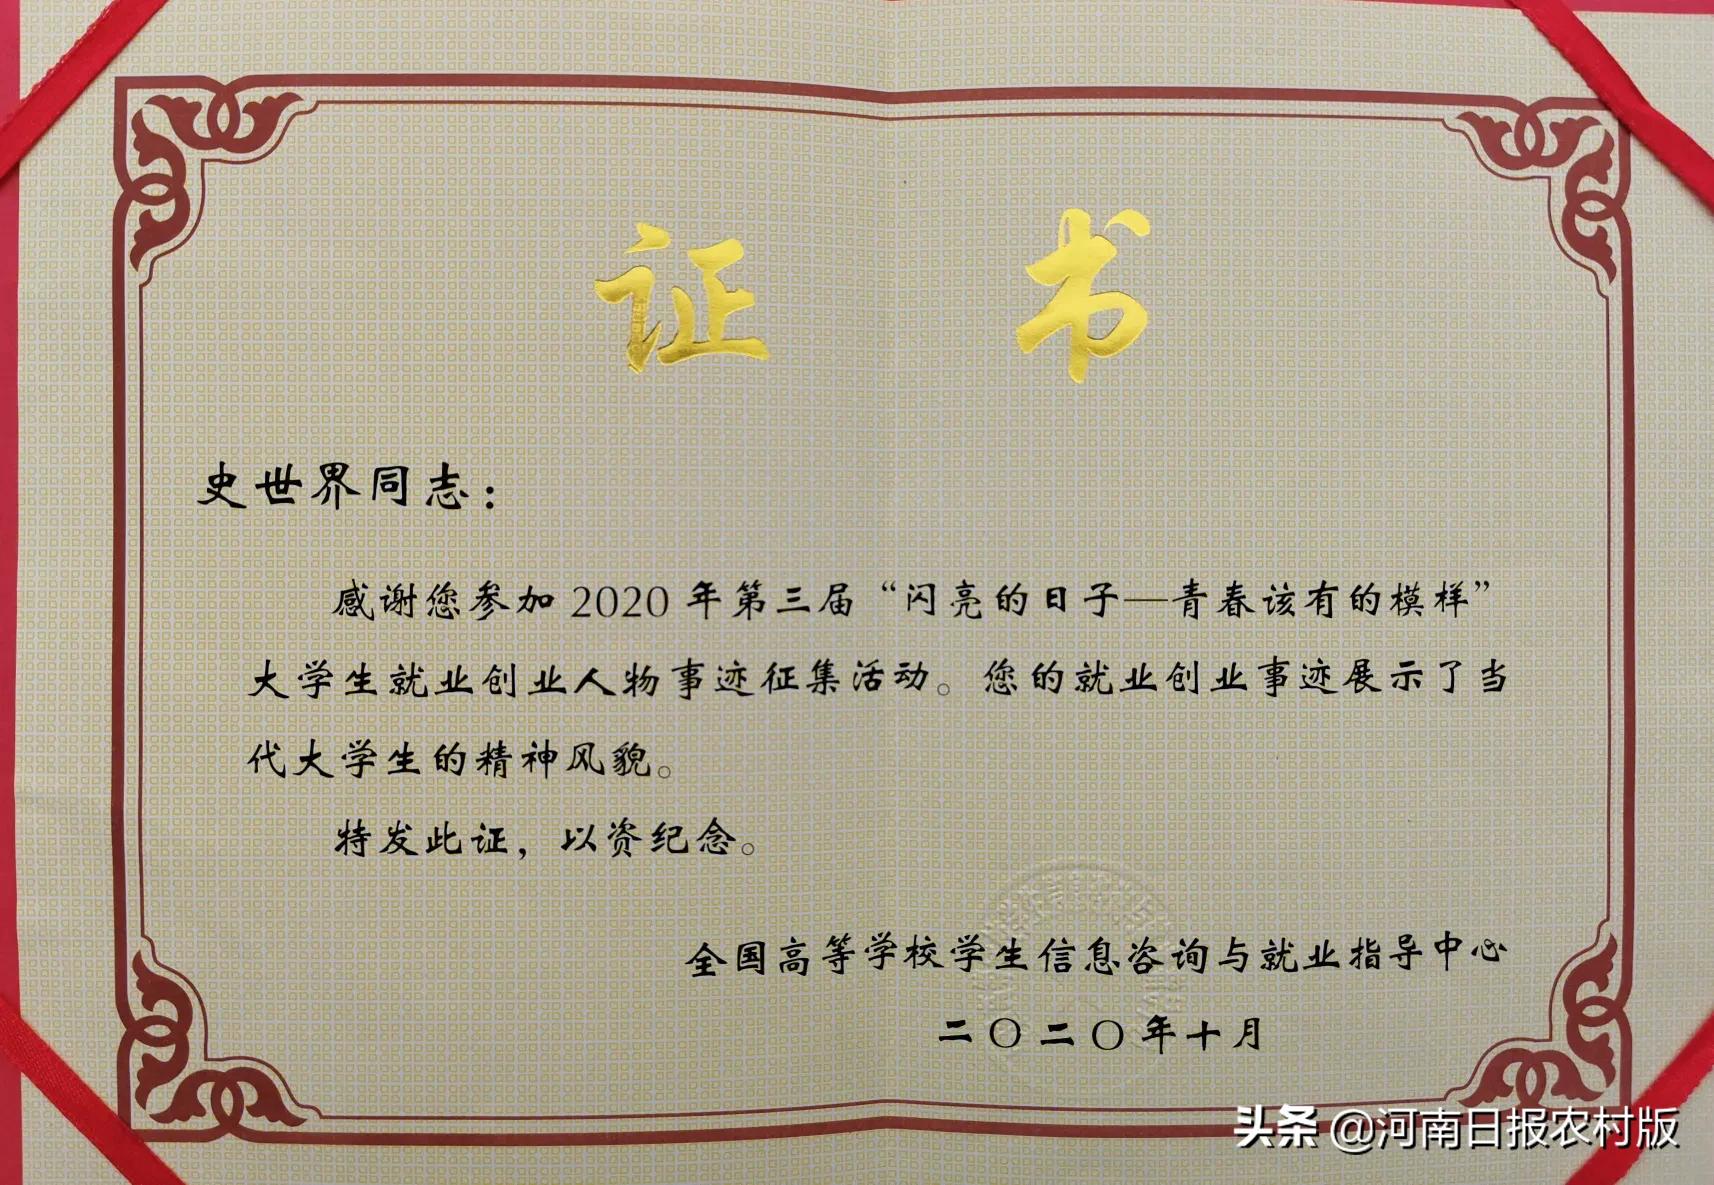 证书
史世界同志：
感谢您参加 2020 年第三届“闪亮的日子—青春该有的模样”
大学生就业创业人物事迹征集活动。您的就业创业事迹展示了当
代大学生的精神风貌。
特发此证，以资纪念。
全国高等学校学生信息咨询与就业指导中心
二〇二〇年十月
头条 @河南日报农村版